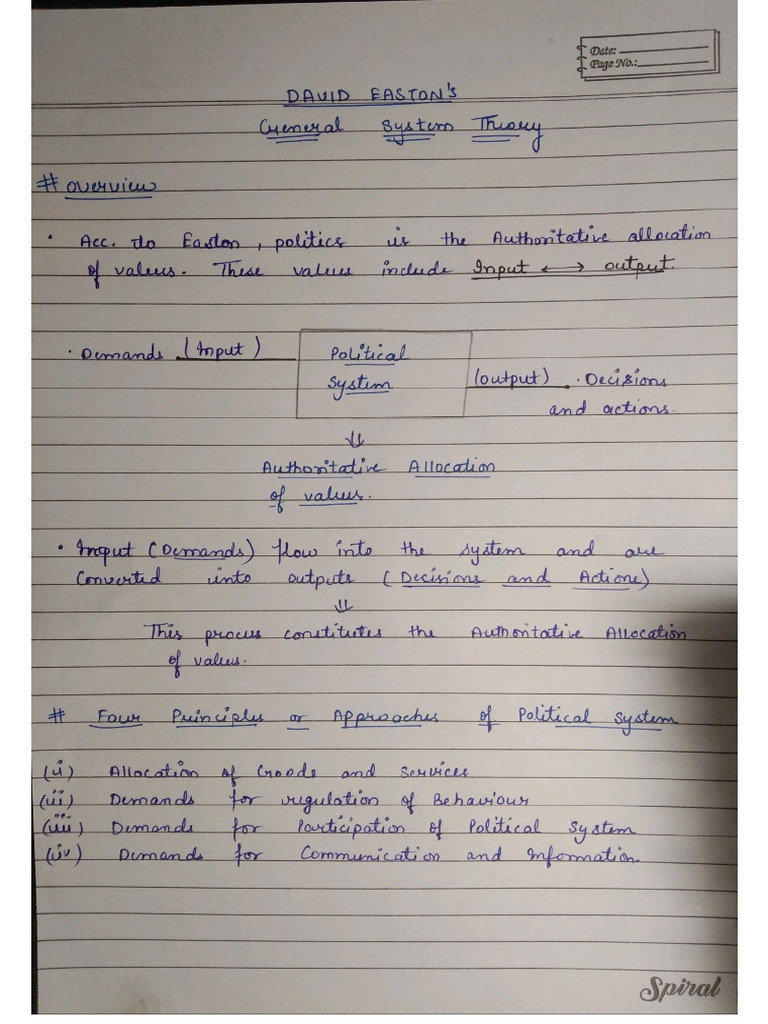 Date:
Page No.:
DAVID EASTON's
General System Theory
# overview
• Acc. to Easton, politics is the Authoritative allocation
of values. These values include Input ↔ output.
• Demands (Input)
Political
System
(output) • Decisions
and actions.
⇓
Authoritative Allocation
of values.
• Input (Demands) flow into the system and are
Converted into outputs (Decisions and Actions)
⇓
This process constitutes the Authoritative Allocation
of values.
# Four Principles or Approaches of Political System
(i) Allocation of Goods and Services
(ii) Demands for regulation of Behaviour
(iii) Demands for Participation of Political System
(iv) Demands for Communication and Information.
Spiral